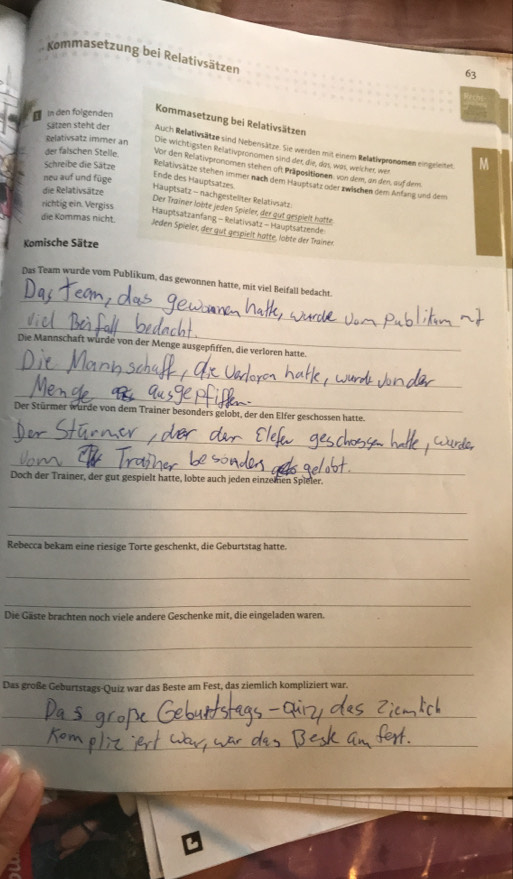 Kommasetzung bei Relativsätzen
63
1 In den folgenden
Sätzen steht der
Relativsatz immer an
der falschen Stelle.
Schreibe die Sätze
neu auf und füge
die Relativsätze
richtig ein. Vergiss
die Kommas nicht.
Kommasetzung bei Relativsätzen
Auch Relativsätze sind Nebensätze. Sie werden mit einem Relativpronomen eingeleitet.
Die wichtigsten Relativpronomen sind der, die, das, was, welcher, wer.
Vor den Relativpronomen stehen oft Präpositionen: von dem, an den, auf dem.
Relativsätze stehen immer nach dem Hauptsatz oder zwischen dem Anfang und dem
Ende des Hauptsatzes.
Hauptsatz – nachgestellter Relativsatz:
Der Trainer lobte jeden Spieler, der gut gespielt hatte.
Hauptsatzanfang – Relativsatz – Hauptsatzende:
Jeden Spieler, der gut gespielt hatte, lobte der Trainer.
M
Komische Sätze
Das Team wurde vom Publikum, das gewonnen hatte, mit viel Beifall bedacht.
Das Team, das gewonnen hatte, wurde vom Publikum mit
viel Beifall bedacht.
Die Mannschaft wurde von der Menge ausgepfiffen, die verloren hatte.
Die Mannschaft, die verloren hatte, wurde von der
Menge ausgepfiffen.
Der Stürmer wurde von dem Trainer besonders gelobt, der den Elfer geschossen hatte.
Der Stürmer, der der Elefer geschossen hatte, wurde
vom Trainer besonders gelobt.
Doch der Trainer, der gut gespielt hatte, lobte auch jeden einzelnen Spieler.
Rebecca bekam eine riesige Torte geschenkt, die Geburtstag hatte.
Die Gäste brachten noch viele andere Geschenke mit, die eingeladen waren.
Das große Geburtstags-Quiz war das Beste am Fest, das ziemlich kompliziert war.
Das große Geburtstags-Quiz, das ziemlich
kompliziert war, war das Beste am Fest.